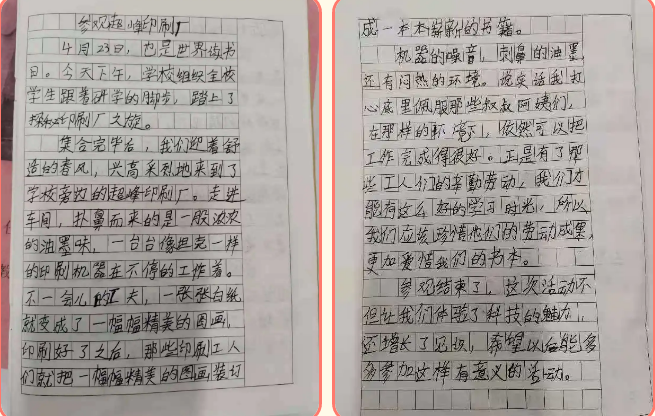 参观超峰印刷厂
4月23日,也是世界读书
日。今天下午,学校组织全校
学生跟着研学的脚步,踏上了
探秘印刷厂之旅。
集合完毕后,我们迎着舒
适的春风,兴高采烈地来到了
学校旁边的超峰印刷厂。走进
车间,扑鼻而来的是一股浓浓
的油墨味,一台台像坦克一样
的印刷机器在不停的工作着。
不一会儿的工夫,一张张白纸
就变成了一幅幅精美的图画,
印刷好了之后,那些印刷工人
们就把一幅幅精美的图画装订
成一本本崭新的书籍。
机器的噪音,刺鼻的油墨,
还有闷热的环境。说实话我打
心底里佩服那些叔叔阿姨们,
在那样的环境下,依然可以把
工作完成得很好。正是有了那
些工人们的辛勤劳动,我们才
能有这么好的学习时光,所以
我们应该珍惜他们的劳动成果,
更加爱惜我们的书本。
参观结束了,这次活动不
但让我们体验了科技的魅力,
还增长了见识,希望以后能多
多参加这样有意义的活动。